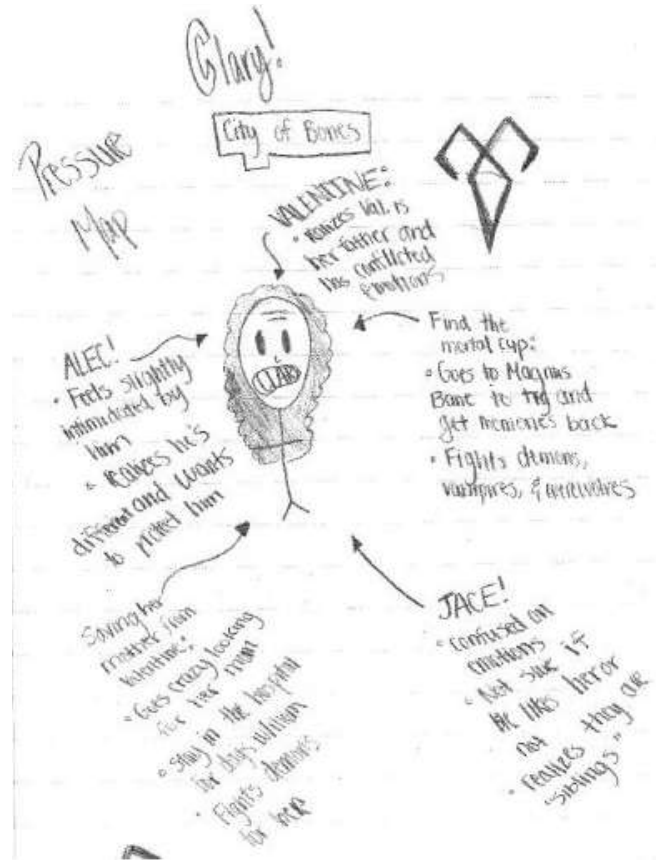 Clary!
City of Bones
Pressure
Map
VALENTINE:
• Realizes Val. is
her father and
has conflicted
emotions
ALEC!
• Feels slightly
intimidated by
him
• realizes he's
different and wants
to protect him
CLARY
Find the
mortal cup:
• Goes to Magnus
Bane to try and
get memories back
• Fights demons,
vampires, & werewolves
Saving her
mother from
Valentine:
• Goes crazy looking
for her mom
• Stay in the hospital
for days
• Fights demons
for her
JACE!
• Confused on
emotions
• Not sure if
he likes her or
not
• realizes they are
"siblings"